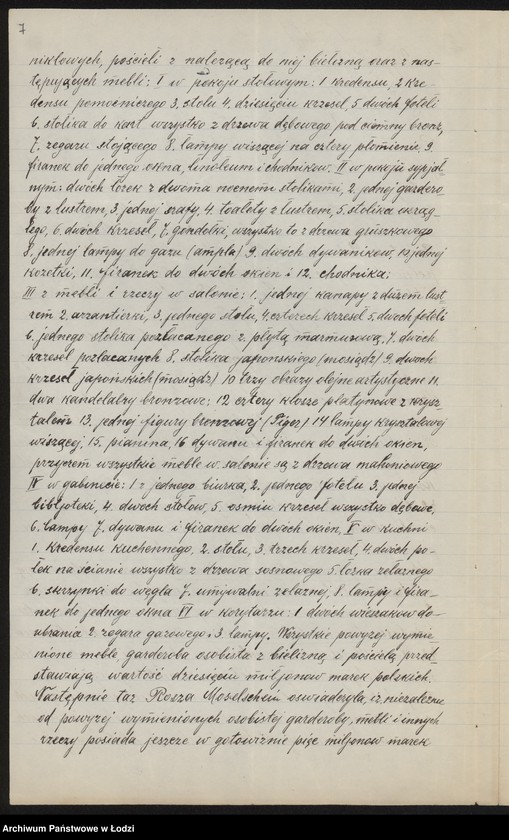 7
niklowych, pościeli z należącą do niej bielizną oraz z nas-
tępujących mebli: I w pokoju stołowym: 1 kredensu, 2 kre
densu pomocniczego 3. stołu 4. dziesięciu krzeseł, 5 dwóch foteli
6. stolika do kart wszystko z drzewa dębowego pod ciemny bronz,
7. zegaru stojącego 8. lampy wiszącej na cztery płomienie, 9.
firanek do jednego okna, linoleum i chodników. II w pokoju sypial
nym: dwóch łóżek z dwoma nocnemi stolikami, 2. jednej gardero-
by z lustrem, 3. jednej szafy, 4. toalety z lustrem, 5. stolika okrąg-
łego, 6. dwóch krzeseł, 7. gondolki, wszystko to z drzewa gruszkowego
8. jednej lampy do gazu (ampla) 9. dwóch dywaników, 10 jednej
kozetki, 11. firanek do dwóch okien i 12. chodnika;
III z mebli i rzeczy w salonie: 1. jednej kanapy z dużem lust
rem 2. 3. jednego stołu, 4. czterech krzeseł 5. dwóch foteli
6. jednego stolika pozłacanego z płytą marmurową, 7. dwóch
krzeseł pozłacanych 8. stolika japońskiego (mosiądz) 9. dwóch
krzeseł japońskich (mosiądz) 10 trzy obrazy olejne artystyczne 11.
dwa kandelabry bronzowe: 12 cztery klosze platynowe z krysz-
tałem 13. jednej figury bronzowej 14 lampy kryształowej
wiszącej, 15. pianina, 16 dywanu i firanek do dwóch okien,
przyczem wszystkie meble w salonie są z drzewa mahoniowego
IV w gabinecie: 1 z jednego biurka, 2. jednego fotelu 3. jednej
bibljoteki, 4. dwóch stołów, 5. ośmiu krzeseł wszystko dębowe,
6. lampy 7. dywanu i firanek do dwóch okien, V w kuchni
1. kredensu kuchennego, 2. stołu, 3. trzech krzeseł, 4. dwóch pó-
łek na ścianie wszystko z drzewa sosnowego 5. łóżka żelaznego
6. skrzynki do węgla 7. umywalni żelaznej, 8. lampy i fira-
nek do jednego okna VI w korytarzu: 1 dwóch wieszaków do
ubrania 2. zegara gazowego i 3 lampy. Wszystkie powyżej wymie
nione meble, garderoba osobista z bielizną i pościelą przed-
stawiają wartość dziesięciu miljonów marek polskich.
Następnie taż Rosza Moselschein oświadczyła, iż niezależnie
od powyżej wymienionych osobistej garderoby, mebli i innych
rzeczy posiada jeszcze w gotowiźnie pięć miljonów marek
Archiwum Państwowe w Łodzi